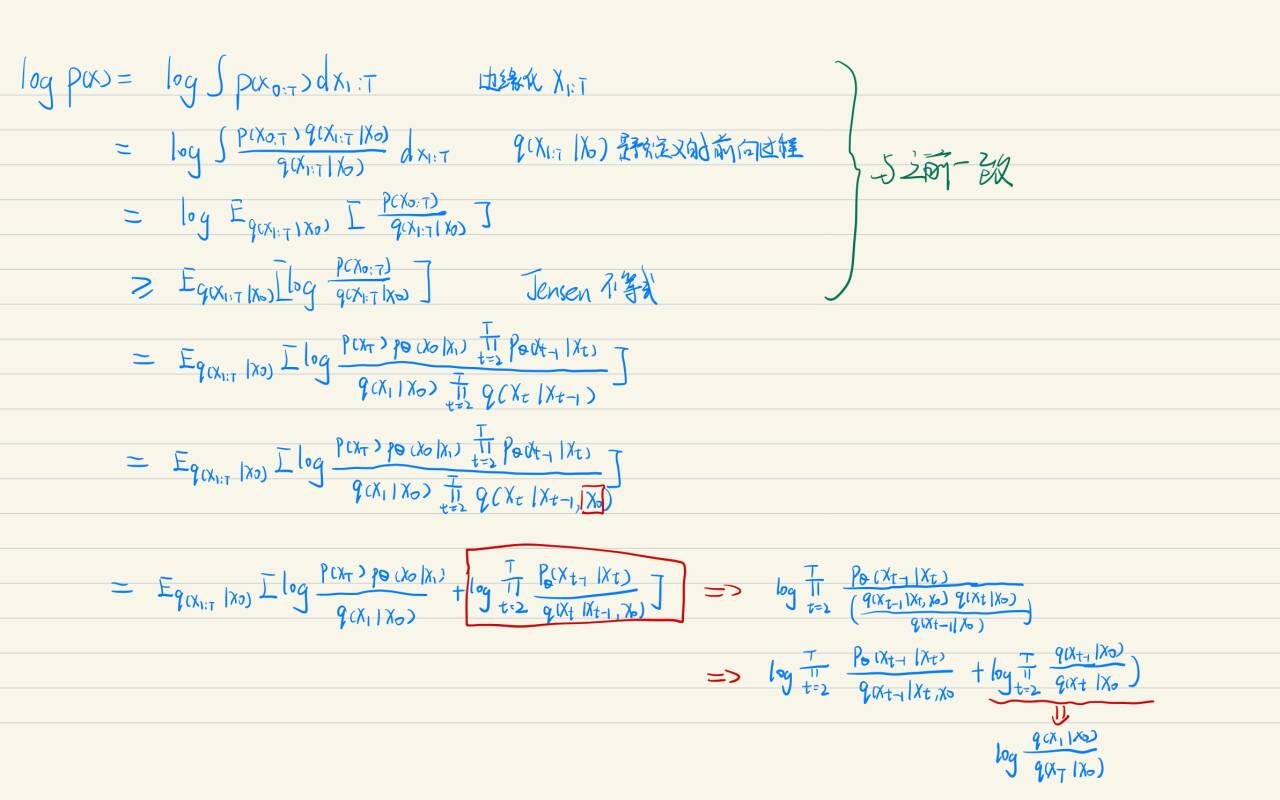 log p(x) = log ∫ p(x_{0:T}) dx_{1:T} 边缘化 x_{1:T}
= log ∫ \frac{p(x_{0:T}) q(x_{1:T}|x_0)}{q(x_{1:T}|x_0)} dx_{1:T} q(x_{1:T}|x_0) 是预定义的前向过程
与之前一致
= log E_{q(x_{1:T}|x_0)} [ \frac{p(x_{0:T})}{q(x_{1:T}|x_0)} ]
≥ E_{q(x_{1:T}|x_0)} [ log \frac{p(x_{0:T})}{q(x_{1:T}|x_0)} ] Jensen 不等式
= E_{q(x_{1:T}|x_0)} [ log \frac{p(x_T) p_θ(x_0|x_1) ∏_{t=2}^{T} p_θ(x_{t-1}|x_t)}{q(x_1|x_0) ∏_{t=2}^{T} q(x_t|x_{t-1})} ]
= E_{q(x_{1:T}|x_0)} [ log \frac{p(x_T) p_θ(x_0|x_1) ∏_{t=2}^{T} p_θ(x_{t-1}|x_t)}{q(x_1|x_0) ∏_{t=2}^{T} q(x_t|x_{t-1}, x_0)} ]
= E_{q(x_{1:T}|x_0)} [ log \frac{p(x_T) p_θ(x_0|x_1)}{q(x_1|x_0)} + log ∏_{t=2}^{T} \frac{p_θ(x_{t-1}|x_t)}{q(x_t|x_{t-1}, x_0)} ] ⇒ log ∏_{t=2}^{T} \frac{p_θ(x_{t-1}|x_t)}{(\frac{q(x_{t-1}|x_t, x_0) q(x_t|x_0)}{q(x_{t-1}|x_0)})}
⇒ log ∏_{t=2}^{T} \frac{p_θ(x_{t-1}|x_t)}{q(x_{t-1}|x_t, x_0} + log ∏_{t=2}^{T} \frac{q(x_{t-1}|x_0)}{q(x_t|x_0})
⇓
log \frac{q(x_1|x_0)}{q(x_T|x_0)}